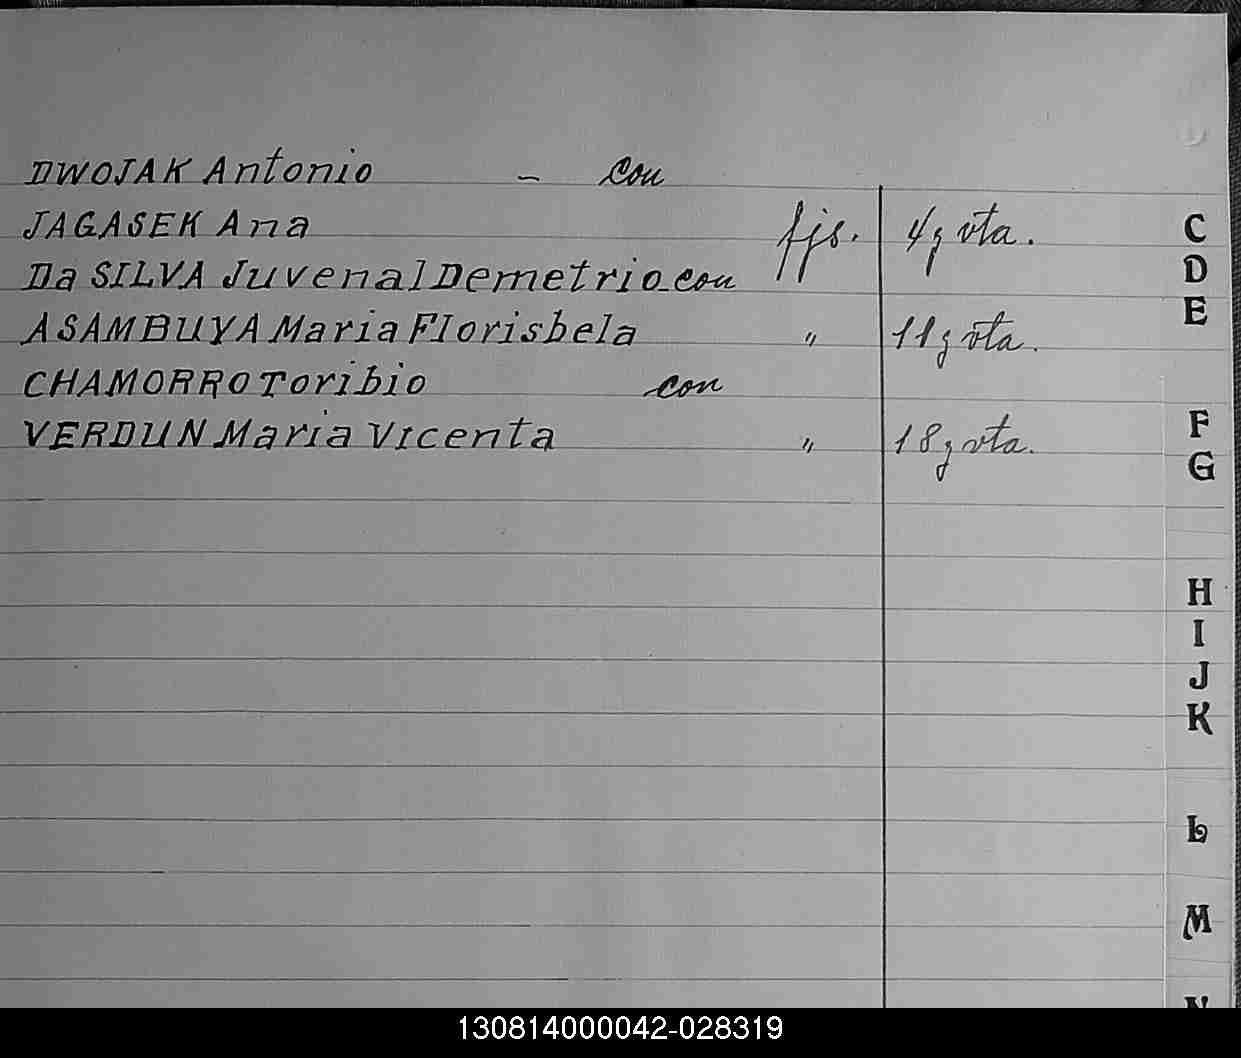 DWOJAK Antonio - con
JAGASEK Ana fjs. 4 y vta.
Da SILVA Juvenal Demetrio con
ASAMBUYA Maria Florisbela " 11 y vta.
CHAMORRO Toribio con
VERDUN Maria Vicenta " 18 y vta.
C
D
E
F
G
H
I
J
K
L
M
N
130814000042-028319